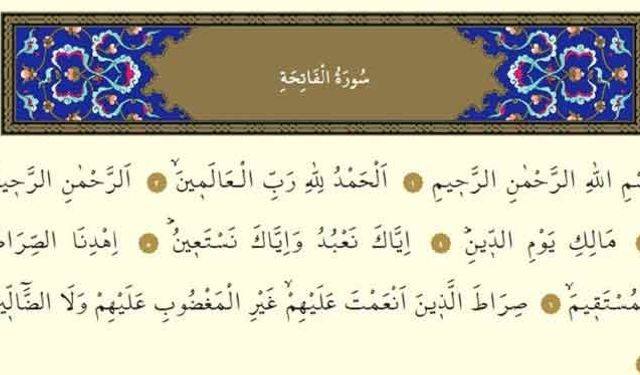 سُورَةُ الْفَاتِحَةِ
سْمِ اللهِ الرَّحْمٰنِ الرَّح۪يمِ ١ اَلْحَمْدُ لِلّٰهِ رَبِّ الْعَالَم۪ينَۙ ٢ اَلرَّحْمٰنِ الرَّح۪ي
مَالِكِ يَوْمِ الدّ۪ينِۜ ٤ اِيَّاكَ نَعْبُدُ وَاِيَّاكَ نَسْتَع۪ينُۜ ٥ اِهْدِنَا الصِّرَا
مُسْتَق۪يمَۙ ٦ صِرَاطَ الَّذ۪ينَ اَنْعَمْتَ عَلَيْهِمْۙ غَيْرِ الْمَغْضُوبِ عَلَيْهِمْ وَلَا الضَّٓالّ۪ي